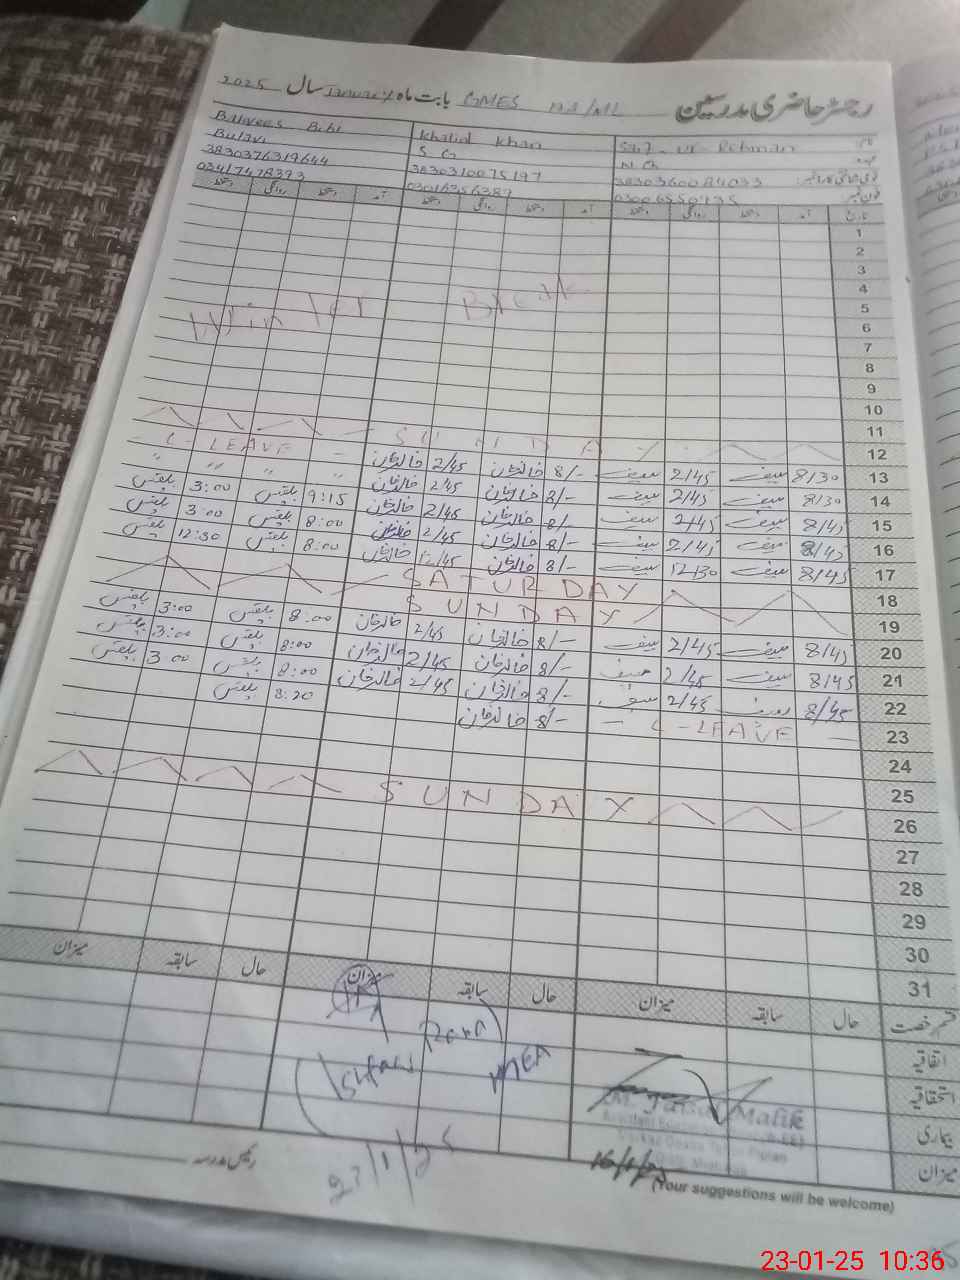 رجسٹر حاضری مدرسین GMES بابت ماہ January سال 2025
نام Saif-ur-Rehman Khalid Khan Bibi
عہدہ N.Ch S.G
قومی شناختی کارڈ نمبر 3830360084033 3830310075197 3830376319644
فون نمبر 03006550935 03016356387 03417478393
تاریخ آمد دستخط روانگی دستخط آمد دستخط روانگی دستخط آمد دستخط روانگی دستخط
1
2
3
4
5
Winter Break
6
7
8
9
10
11
12 SUNDAY
13 8/30 سیف 2/45 سیف 8/- خالد خان 2/45 خالد خان - C-LEAVE -
14 8/30 سیف 2/45 سیف 8/- خالد خان 2/45 خالد خان " " " "
15 8/45 سیف 2/45 سیف 8/- خالد خان 2/45 خالد خان 9:15 بلقیس 3:00 بلقیس
16 8/45 سیف 2/45 سیف 8/- خالد خان 2/45 خالد خان 8:00 بلقیس 3:00 بلقیس
17 8/45 سیف 12/30 سیف 8/- خالد خان 12/45 خالد خان 8:00 بلقیس 12:30 بلقیس
18 SATURDAY
19 SUNDAY
20 8/45 سیف 2/45 سیف 8/- خالد خان 2/45 خالد خان 8:00 بلقیس 3:00 بلقیس
21 8/45 سیف 2/45 سیف 8/- خالد خان 2/45 خالد خان 8:00 بلقیس 3:00 بلقیس
22 8/45 سیف 2/45 سیف 8/- خالد خان 2/45 خالد خان 8:00 بلقیس 3:00 بلقیس
23 - C-LEAVE - 8/- خالد خان 8:20 بلقیس
24
25
26 SUNDAY
27
28
29
30
31
قسم رخصت حال سابقہ میزان حال سابقہ میزان حال سابقہ میزان
اتفاقیہ
استحقاقیہ
بیماری
میزان
MEA
Malik
16/1/25
23/1/25
رئیس مدرسہ
(Your suggestions will be welcome)
23-01-25 10:36